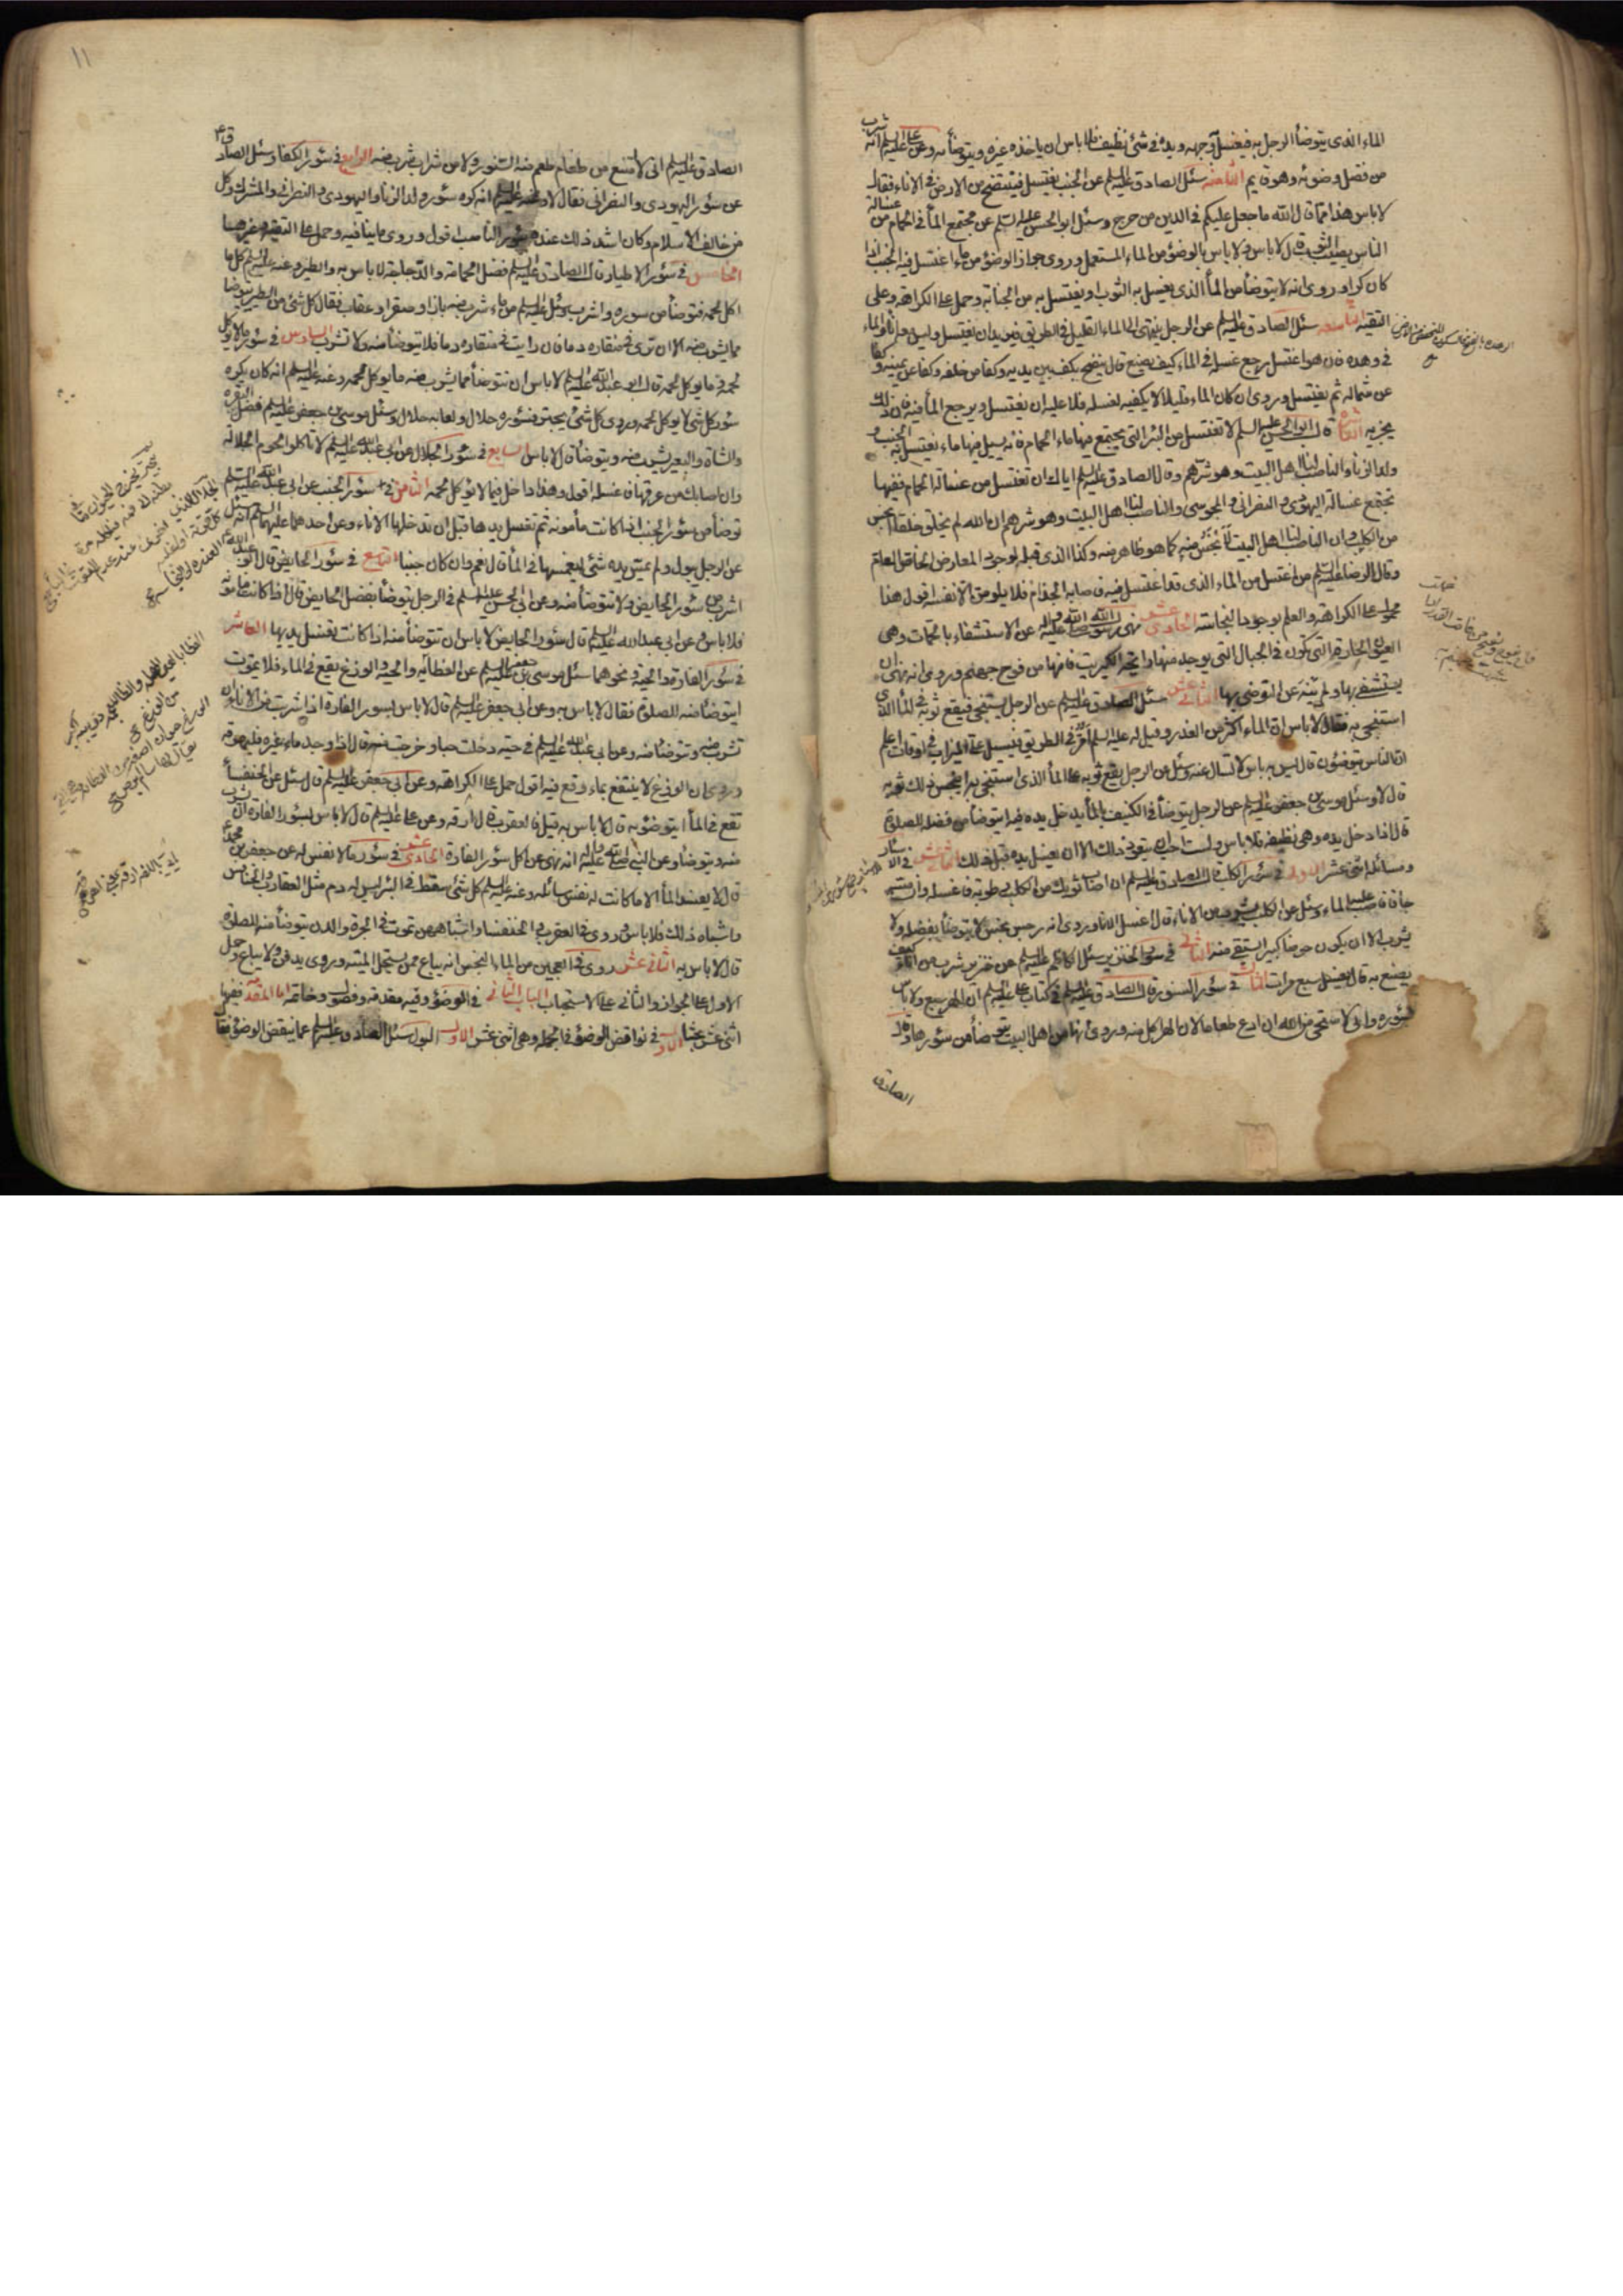 الماء الذى يتوضأ الرجل به فيغسل به وجهه ويده فى شئ نظيف فلا باس ان ياخذه غيره ويتوضأ به وعن على عليه السلم انه شرب
من فضل وضوئه وهو قايم الثامنه سئل الصادق عليه السلم عن الجنب يغتسل فينتضح من الارض فى الاناء فقال
لا باس هذا مما قال الله ما جعل عليكم فى الدين من حرج وسئل ابو الحسن عليه السلم عن مجتمع المأ فى الحمام من غسالة
الناس يصيب الثوب قال لا باس ولا باس بالوضوء من الماء المستعمل وروى جواز الوضوء من ماء اغتسل فيه الجنب اذا
كان كرا وروى انه لا يتوضأ من المأ الذى يغسل به الثوب او يغتسل به من الجنابة وحمل على الكراهة وعلى
التقيه التاسعه سئل الصادق عليه السلم عن الرجل ينتهى الى الماء القليل فى الطريق ويريد ان يغتسل وليس معه اناء والماء
فى وهده فان هو اغتسل رجع غسله فى الماء كيف يصنع قال ينضح بكف بين يديه وكفا من خلفه وكفا عن يمينه وكفا
عن شماله ثم يغتسل وروى ان كان الماء قليلا لا يكفيه لغسله فلا عليه ان يغتسل ويرجع المأ فيه فان ذلك
يجزيه العاشره قال ابو الحسن عليه السلم لا تغتسل من البئر التى يجتمع فيها ماء الحمام فانه يسيل فيها ماء يغتسل به الجنب و
ولد الزنا والناصب لنا اهل البيت وهو شرهم وقال الصادق عليه السلم اياك ان تغتسل من غسالة الحمام ففيها
تجتمع غسالة اليهودى والنصرانى والمجوسى والناصب لنا اهل البيت وهو شرهم ان الله لم يخلق خلقا انجس
من الكلب وان الناصب لنا اهل البيت لأنجس منه كما هو ظاهر منه وكذا الذى قبله لوجود المعارض الخاص العام
وقال الرضا عليه السلم من اغتسل من الماء الذى قد اغتسل فيه فاصابه الجذام فلا يلومن الا نفسه اقول هذا
محمول على الكراهة والعلم بوجود النجاسة الحادى عشر نهى رسول الله صلى الله عليه واله عن الاستشفاء بالحمات وهى
العيون الحارة التى تكون فى الجبال التى يوجد منها رايحة الكبريت فانها من فوح جهنم وروى انه نهى ان
يستشفى بها ولم ينه عن التوضى بها الثانى عشر سئل الصادق عليه السلم عن الرجل يستنجى فيقع ثوبه فى المأ الذى
استنجى به فقال لا باس ان الماء اكثر من القذر وقيل له عليه السلم امر فى الطريق فيسيل على الميزاب فى اوقات اعلم
ان الناس يتوضؤن قال ليس به باس لا تسال عنه وسئل عن الرجل يقع ثوبه على المأ الذى استنجى به اينجس ذلك ثوبه
قال لا وسئل موسى بن جعفر عليه السلم عن الرجل يتوضأ فى الكنيف بالمأ يدخل يده فيه ايتوضأ من فضله للصلوة
قال اذا دخل يده وهى نظيفة فلا باس ولست احب ان يتعود ذلك الا ان يغسل يده قبل ذلك فى الاسئار
ومسائله اثنى عشر الاولى فى سؤر الكلب قال الصادق عليه السلم ان اصاب ثوبك من الكلب رطوبة فاغسله وان مسه
جافا فاصبب عليه الماء وسئل عن الكلب يشرب من الاناء قال اغسل الاناء وروى انه رجس نجس لا يتوضأ بفضله ولا
يشرب الا ان يكون حوضا كبيرا يستقى منه الثانى فى سؤر الخنزير سئل الكاظم عليه السلم عن خنزير شرب من اناء كيف
يصنع به قال يغسل سبع مرات الثالث فى سؤر السنور قال الصادق عليه السلم فى كتاب على عليه السلم ان الهر سبع ولا باس
بسؤره وانى لاستحى من الله ان ادع طعاما لان الهر اكل منه وروى انها من اهل البيت يتوضأ من سؤرها وقال
الصادق
١١
الصادق عليه السلم انى لا امتنع من طعام طعم منه السنور ولا من شراب شرب منه الرابع فى سؤر الكفار سئل الصادق ع
عن سؤر اليهودى والنصرانى فقال لا وعنه عليه السلم انه كره سؤر ولد الزنا واليهودى والنصرانى والمشرك وكل
من خالف الاسلام وكان اشد ذلك عنده سؤر الناصب اقول وروى ما ينافيه وحمل على التقيه
الخامس فى سؤر الاطيار قال الصادق عليه السلم فضل الحمامة والدجاجة لا باس به والطير وعنه عليه السلم كل ما
اكل لحمه فتوضأ من سوره واشرب وسئل عليه السلم عن ماء شرب منه باز او صقر او عقاب فقال كل شئ من الطير يتوضأ
مما يشرب منه الا ان ترى فى منقاره دما فان رايت فى منقاره دما فلا يتوضأ منه ولا تشرب السادس فى سؤر ما لا يؤكل
لحمه وما يوكل لحمه قال ابو عبد الله عليه السلم لا باس ان تتوضأ مما يشرب منه ما يوكل لحمه وعنه عليه السلم انه كان يكره
سؤر كل شئ لا يوكل لحمه وروى كل شئ يجتر فسؤره حلال ولعابه حلال وسئل موسى بن جعفر عليه السلم فضل البقره
والشاة والبعير يشرب منه ويتوضأ قال لا باس السابع فى سؤر الجلال عن ابى عبد الله عليه السلم لا تاكلوا لحوم الجلالة
وان اصابك من عرقها فاغسله اقول وهذا داخل فيما لا يؤكل لحمه الثامن فى سؤر الجنب عن ابى عبد الله عليه السلم
توضأ من سؤر الجنب اذا كانت مأمونة ثم تغسل يدها قبل ان تدخلها الاناء وعن احدهما عليهما السلم انه سئل
عن الرجل يبول ولم يمس يده شئ ايغمسها فى المأ قال نعم وان كان جنبا التاسع فى سؤر الحايض قال ابو عبد الله ع
اشرب من سؤر الحايض ولا تتوضأ منه وعن ابى الحسن عليه السلم فى الرجل يتوضأ بفضل الحايض قال اذا كانت مأمونة
فلا باس وعن ابى عبد الله عليه السلم قال سؤر الحايض لا باس ان تتوضأ منه اذا كانت تغسل يديها العاشر
فى سؤر الفارة والحية ونحوهما سئل موسى بن جعفر عليه السلم عن العظاية والحية والوزغ يقع فى الماء فلا يموت
ايتوضأ منه للصلوة فقال لا باس به وعن ابى جعفر عليه السلم قال لا باس بسور الفارة اذا شربت من الاناء ان
تشرب منه وتتوضأ منه وعن ابى عبد الله عليه السلم فى حية دخلت حبا وخرجت منه قال اذا وجد ماء غيره فليهرقه
وروى ان الوزغ لا ينتفع بماء وقع فيه اقول حمل على الكراهة وعن ابى جعفر عليه السلم قال سئل عن الخنفساء
تقع فى المأ ايتوضؤ به قال لا باس به قيل فالعقرب قال ارقه وعن على عليه السلم قال لا باس بسؤر الفارة ان يشرب
منه ويتوضأ وعن النبى صلى الله عليه واله انه نهى عن اكل سؤر الفارة الحادى عشر فى سؤر ما لا نفس له عن جعفر بن محمد ع
قال لا يفسد المأ الا ما كانت له نفس سائله وعنه عليه السلم كل شئ سقط فى البئر ليس له دم مثل العقارب والخنافس
واشباه ذلك فلا باس وروى فى العقرب والخنفساء واشباههن تموت فى الجرة والدن يتوضأ منه للصلوة
قال لا باس به الثانى عشر روى فى العجين من الماء النجس انه يباع ممن يستحل الميته وروى يدفن ولا يباع وحمل
الاول على الجواز والثانى على الاستحباب الباب الثانى فى الوضوء وفيه مقدمة وفصول وخاتمة اما المقدمة ففيها
اثنى عشر بحثا الاول فى نواقض الوضوء فى الجملة وهى اثنى عشر الاول البول سئل الصادق عليه السلم عما ينقض الوضوء فقال